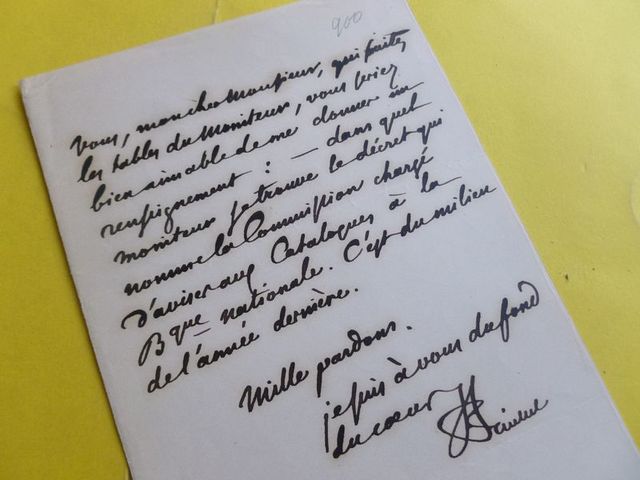 900
vous, mon cher Monsieur, qui faites
les tables du Moniteur, vous seriez
bien aimable de me donner un
renseignement : — dans quel
moniteur je trouve le décret qui
nomme la Commission chargé
d'aviser aux Catalogues à la
Bque nationale. C'est du milieu
de l'année dernière.
Mille pardons.
je suis à vous du fond
du cœur